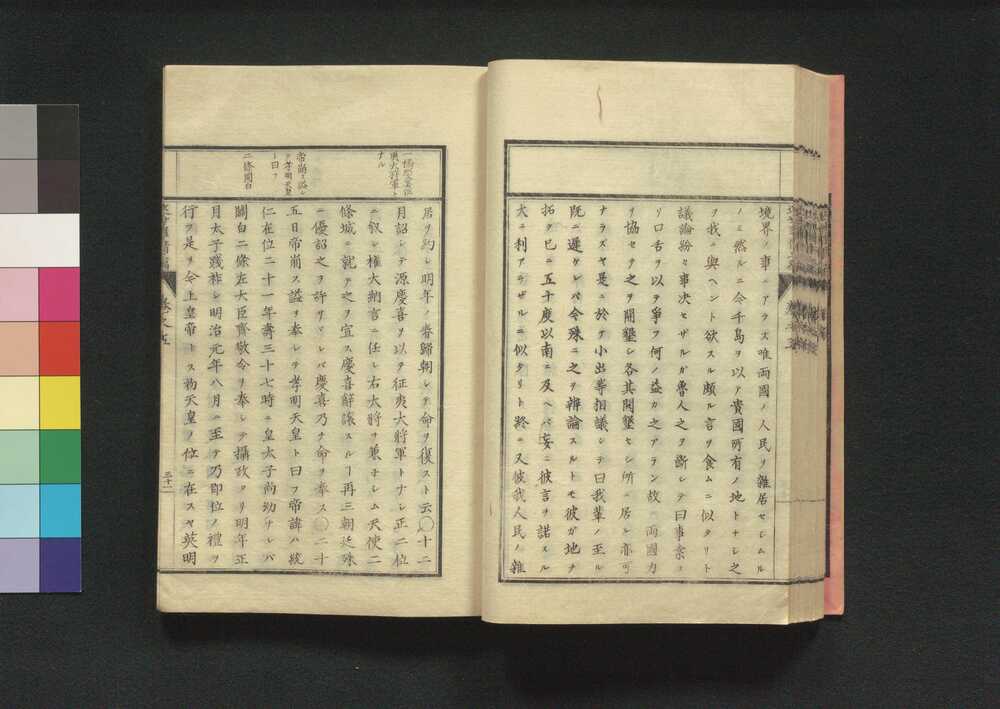 境界ノ事ニアラズ唯両國ノ人民ヲ雜居セシムル
ノミ然ルニ今千島ヲ以テ貴國所有ノ地トナシ之
ヲ我ニ與ヘント欲スル頗ル言ヲ食ムニ似タリト
議論紛々事決セザルガ魯人之ヲ斷シテ曰事茲ニ
ソ口舌ヲ以テ爭フ何ノ益カ之アラン故ニ両國力
ヲ協セテ之ヲ開墾シ各其開墾セシ所ニ居レ亦可
ナラズヤ是ニ於テ小出等相議シテ曰我輩ノ至ル
既ニ遲ケレバ今殊ニ之ヲ辨論スルトモ彼ガ地ヲ
拓ク已ニ五十度以南ニ及ヘバ妄ニ彼言ヲ諾スル
大ニ利アラザルニ似タリト終ニ又彼我人民ノ雜
居ヲ約シ明年ノ春歸朝シテ命ヲ復スト云○十二
月詔シテ源慶喜ヲ以テ征夷大將軍トナシ正二位
ニ叙シ權大納言ニ任シ右大將ヲ兼子シム天使二
條城ニ就テ之ヲ宣ス慶喜辭讓スルヿ再三朝廷殊
ニ優詔之ヲ許サヾレバ慶喜乃チ命ヲ奉ス○二十
五日帝崩ス諡ヲ奉シテ孝明天皇ト曰フ帝諱ハ統
仁在位二十一年壽三十七時ニ皇太子尚幼ナレバ
關白二條左大臣齊敬令ヲ奉シテ攝政タリ明年正
月太子踐祚シ明治元年八月ニ至テ乃即位ノ禮ヲ
行フ是ヲ今上皇帝トス初天皇ノ位ニ在スヤ英明
一橋慶喜征
夷大將軍ト
ナル
帝崩ス諡シ
テ孝明天皇
ト曰フ
二條関白
卷之五
三十一